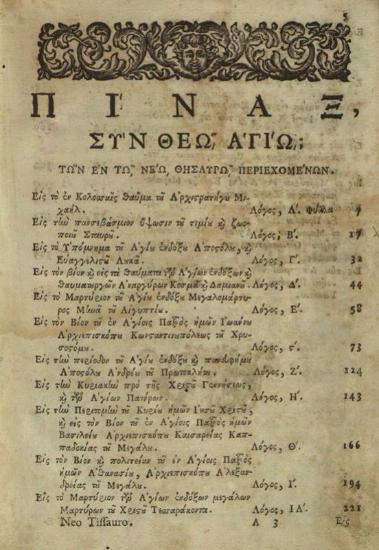 5
ΠΙΝΑΞ,
ΣΥΝ ΘΕΩ͂ ἉΓΙΩ;
ΤΩΝ ΕΝ ΤΩ͂ ΝΕΩ ΘΗΣΑΥΡΩ͂ ΠΕΡΙΕΧΟΜΕΝΩΝ.
Εἰς τὸ ἐν Κολοσσαῖς Θαῦμα τοῦ Ἀρχιστρατήγου Μι-
χαήλ. Λόγος, Α΄. Φύλλα 7
Εἰς τὴν παγσεβάσμιον ὕψωσιν τοῦ τιμίου καὶ ζωο-
ποιοῦ Σταυροῦ. Λόγος, Β΄. 17
Εἰς τὸ Ὑπόμνημα τοῦ Ἁγίου ἐνδόξου Ἀποστόλου, καὶ
Εὐαγγελιστοῦ Λουκᾶ. Λόγος, Γ΄. 32
Εἰς τὸν βίον καὶ εἰς τὰ Θαύματα τῶν Ἁγίων ἐνδόξων καὶ
Θαυματουργῶν Ἀναργύρων Κοσμᾶ καὶ Δαμιανοῦ. Λόγος, Δ΄. 44
Εἰς τὸ Μαρτύριον τοῦ Ἁγίου ἐνδόξου Μεγαλομάρτυ-
ρος Μηνᾶ τοῦ Αἰγυπτίου. Λόγος, Ε΄. 58
Εἰς τὸν Βίον τοῦ ἐν Ἁγίοις Πατρὸς ἡμῶν Ἰωάννου
Ἀρχιεπισκόπου Κωνσταντινουπόλεως τοῦ Χρυ-
σοστόμου. Λόγος, ϛ΄. 73
Εἰς τὴν περίοδον τοῦ Ἁγίου ἐνδόξου καὶ πανευφήμου
Ἀποστόλου Ἀνδρέου τοῦ Πρωτοκλήτου. Λόγος, Ζ΄. 124
Εἰς τὴν Κυριακὴν πρὸ τῆς Χριστοῦ Γεννήσεως,
καὶ τῶν Ἁγίων Πατέρων. Λόγος, Η΄. 143
Εἰς τὴν Περιτομὴν τοῦ Κυρίου ἡμῶν Ἰησοῦ Χριστοῦ,
καὶ εἰς τὸν Βίον τοῦ ἐν Ἁγίοις Πατρὸς ἡμῶν
Βασιλείου Ἀρχιεπισκόπου Καισαρείας Καπ-
παδοκίας τοῦ Μεγάλου. Λόγος, Θ΄. 166
Εἰς τὸν Βίον καὶ πολιτείαν τοῦ ἐν Ἁγίοις Πατρὸς
ἡμῶν Ἀθανασίου, Ἀρχιεπισκόπου Ἀλεξαν-
δρείας τοῦ Μεγάλου. Λόγος, Ι΄. 194
Εἰς τὸ Μαρτύριον τῶν Ἁγίων ἐνδόξων μεγάλων
Μαρτύρων τοῦ Χριστοῦ Τεσσαράκοντα. Λόγος, ΙΑ΄. 221
Neo Tissauro. A 3 Εἰς